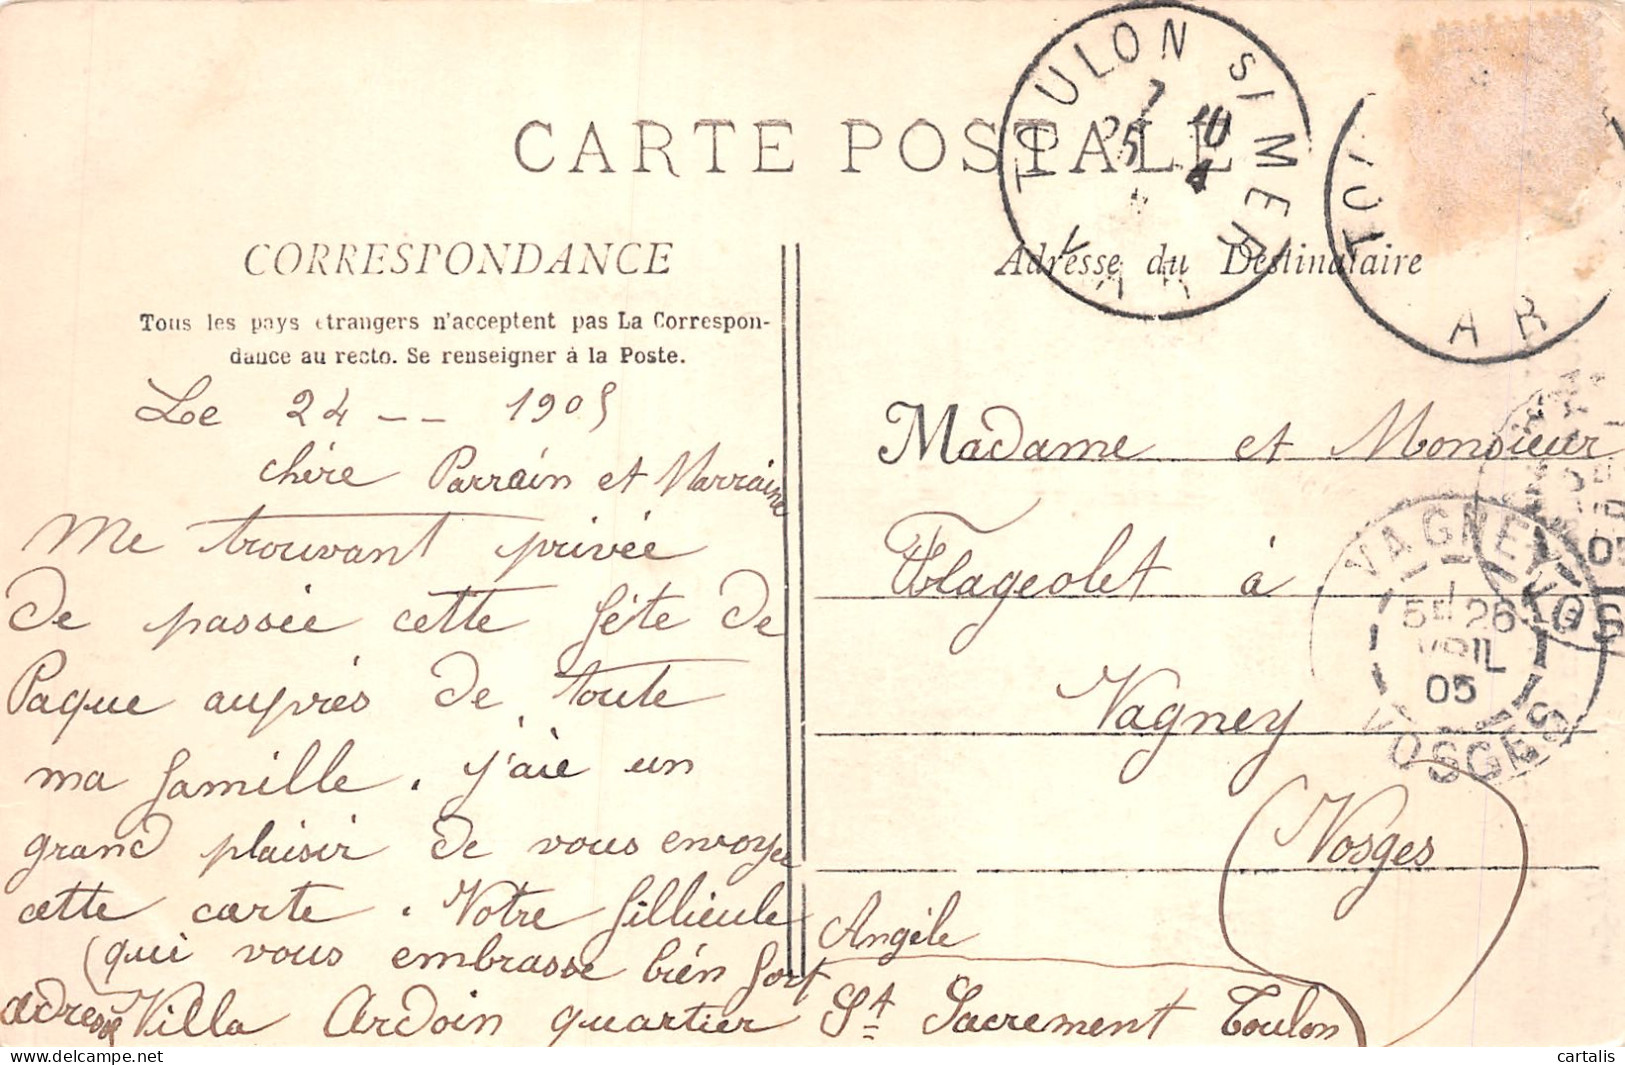 CARTE POSTALE
TOULON S/MER
7 10
25 4
VAR
TOU
AR
CORRESPONDANCE
Tous les pays étrangers n'acceptent pas La Correspon-
dance au recto. Se renseigner à la Poste.
Adresse du Destinataire
Le 24 -- 1905
chère Parrain et Marraine
Me trouvant privée
de passée cette fête de
Paque auprès de toute
ma famille. j'aie un
grand plaisir de vous envoyer
cette carte. Votre fillieule Angèle
(qui vous embrasse bien fort
adresse Villa Ardoin quartier St Sacrement Toulon
Madame et Monsieur
Flageolet à
Vagney
Vosges
VAGNEY
5E 26
AVRIL
05
VOSGES
05
VOS
cartalis